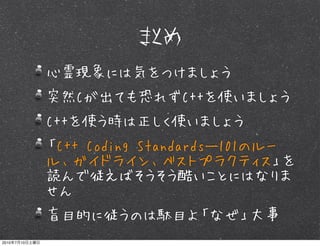 まとめ
心霊現象には気をつけましょう
突然Cが出ても恐れずC++を使いましょう
C++を使う時は正しく使いましょう
「C++ Coding Standards―101のルー
ル、ガイドライン、ベストプラクティス」を
読んで従えばそうそう酷いことにはなりま
せん
盲目的に従うのは駄目よ「なぜ」大事
2010年7月10日土曜日